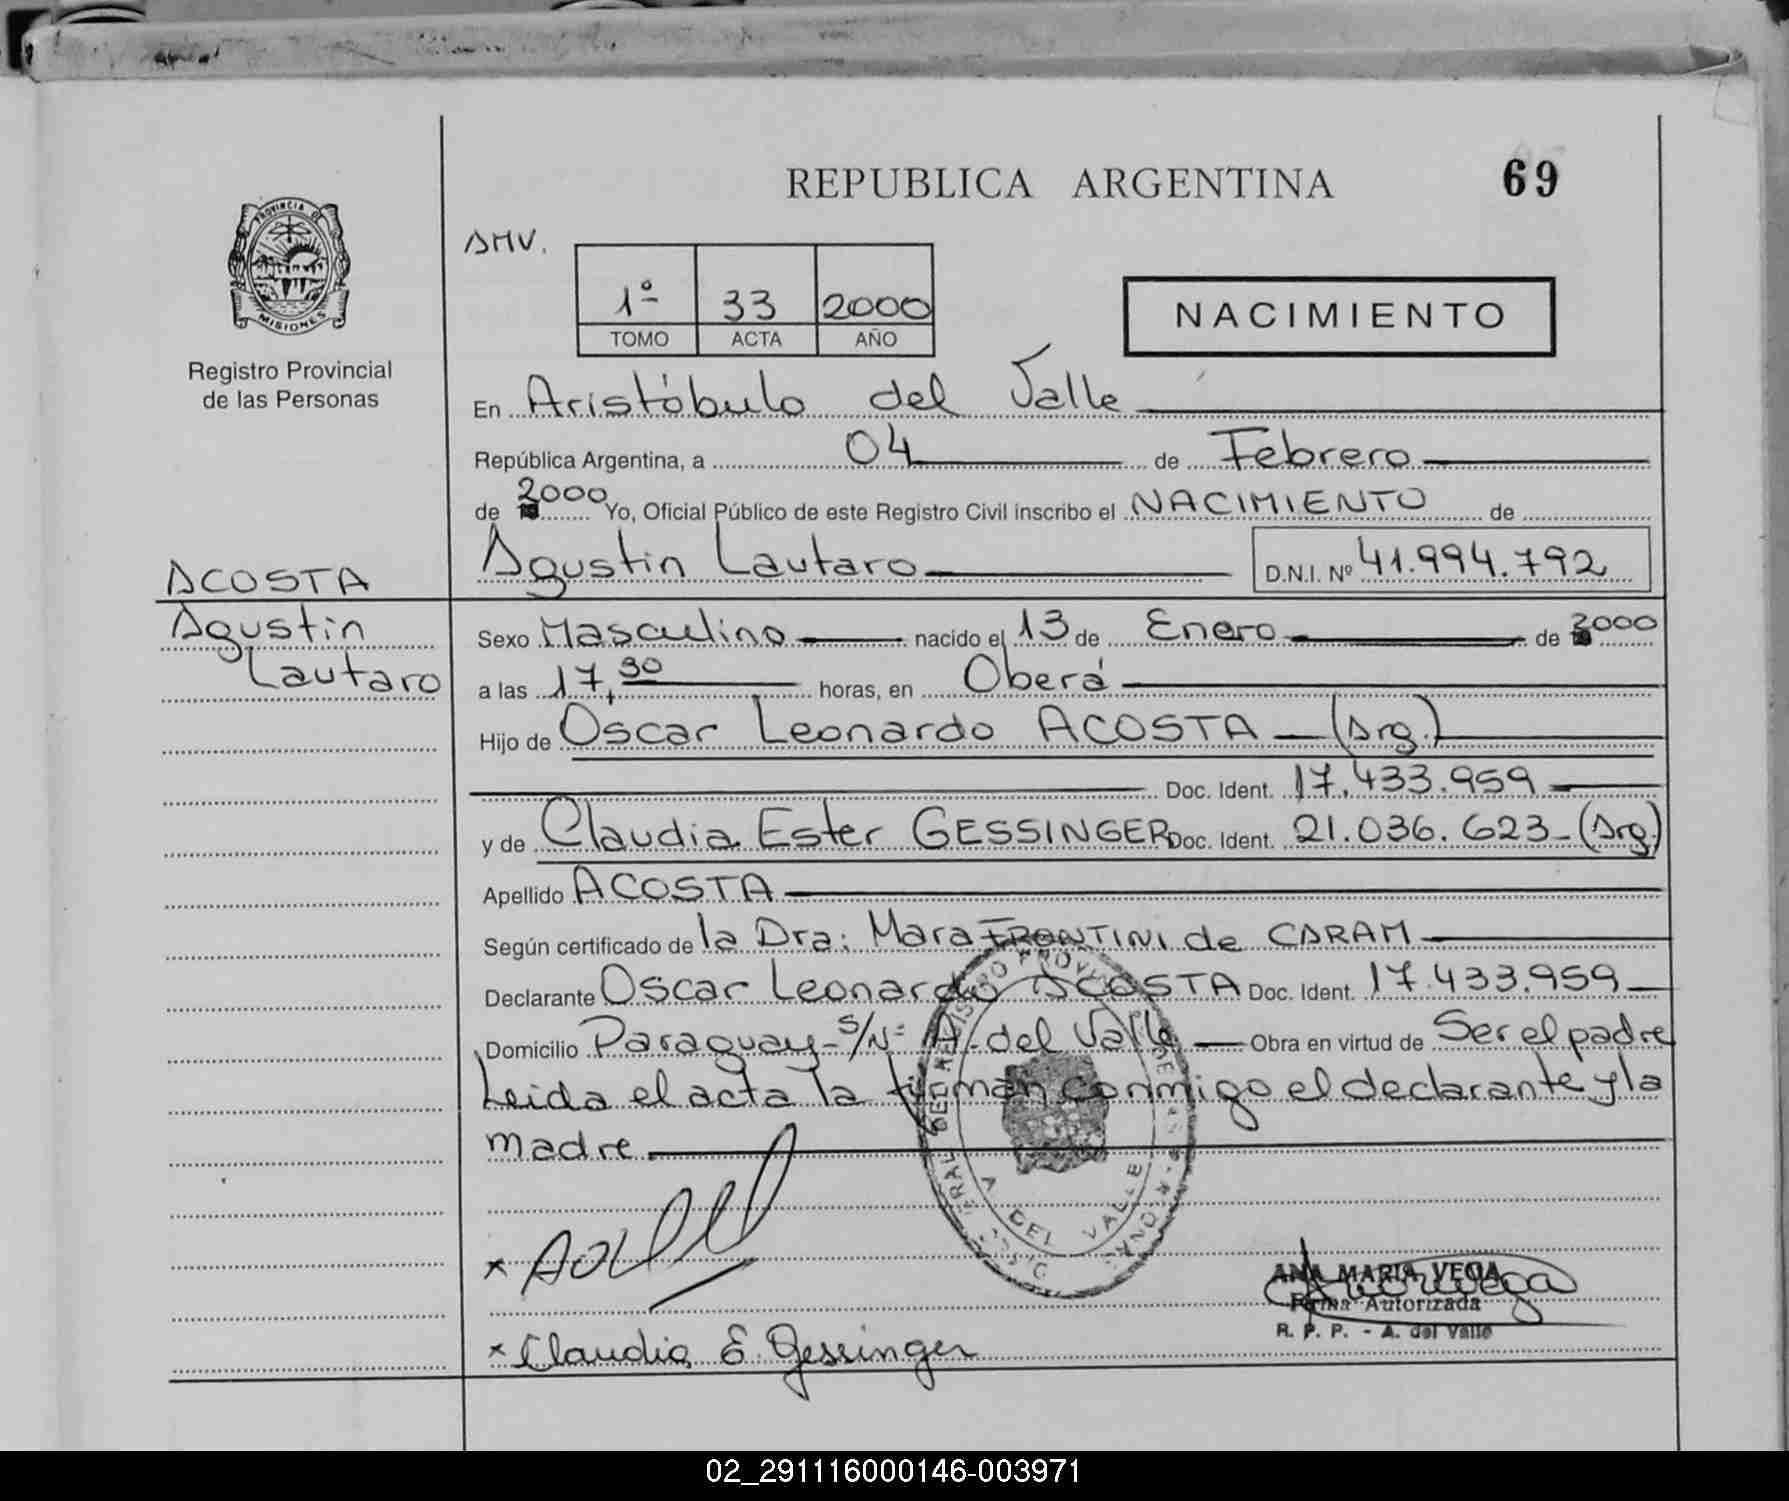 REPUBLICA ARGENTINA
69
PROVINCIA DE
MISIONES
Registro Provincial
de las Personas
AMV.
1º 33 2000
TOMO ACTA AÑO
NACIMIENTO
En Aristóbulo del Valle
República Argentina, a 04 de Febrero
de 2000 Yo, Oficial Público de este Registro Civil inscribo el NACIMIENTO de
Agustin Lautaro D.N.I. Nº 41.994.792
ACOSTA
Agustin
Lautaro
Sexo Masculino nacido el 13 de Enero de 2000
a las 17,30 horas, en Oberá
Hijo de Oscar Leonardo ACOSTA - (Arg.)
Doc. Ident. 17.433.959
y de Claudia Ester GESSINGER Doc. Ident. 21.036.623 - (Arg.)
Apellido ACOSTA
Según certificado de la Dra: Mara FRONTINI de CARAM
Declarante Oscar Leonardo ACOSTA Doc. Ident. 17.433.959
Domicilio Paraguay - S/Nº A. del Valle Obra en virtud de Ser el padre
Leida el acta la firman conmigo el declarante y la
madre
A DEL VALLE
x
ANA MARIA VEGA
Firma Autorizada
R. P. P. - A. del Valle
x Claudia E. Gessinger
02_291116000146-003971